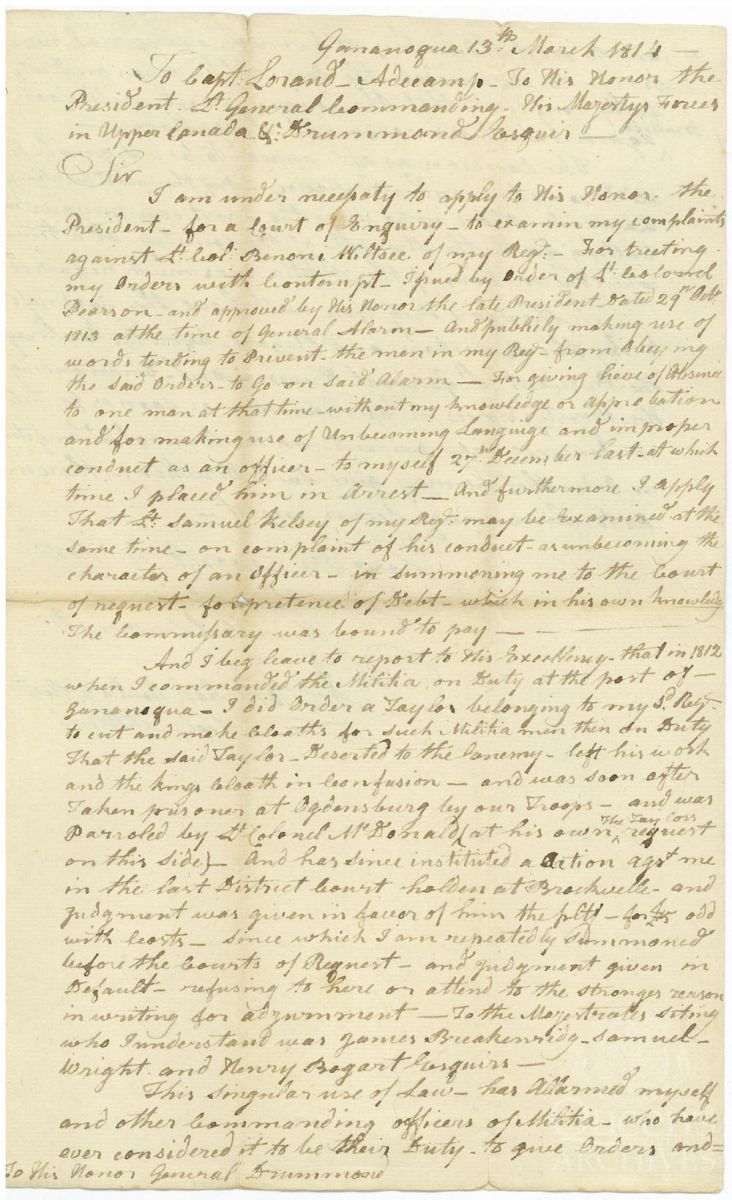 Gananoqua 13th March 1814 —
To Capt. Lorand - Adecamp - To His Honor the
President Lt. General Commanding - His Majestys Forces
in Upper Canada &c Drummond Esquir —
Sir
I am under necessaty to apply to His Honor the
President - for a Court of Enquiry - to examin my complaints
against Lt. Col. Benoni Wiltsee of my Regt. - For treeting
my Orders with Contempt - Issued by Order of Lt. Colonel
Pearson - and approved by His Honor the late President Dated 29th Octr.
1813 at the time of General Alarm — And publicly making use of
words tending to Privent - the men in my Regt. from Obeying
the said Orders - to Go on said Alarm — For giving lieve of Absence
to one man at that time - without my knowledge or approbation
and for making use of Unbecoming Languige and improper
conduct as an officer - to myself 27th December last - at which
time I placed him in Arrest — And furthermore I apply
That Lt. Samuel Kelsey of my Regt. may be Examined at the
same time - on complaint of his conduct - as unbecoming the
character of an Officer - in summoning me to the Court
of request - for pretence of Debt - which in his own knowledg
The Commissary was bound to pay — —
And I beg leave to report to His Excellency - that in 1812
when I commanded the Militia on Duty at the post of —
Gananoqua - I did Order a Taylor belonging to my Sd. Regt.
to cut and make Cloaths for such Militia men then on Duty
That the said Taylor - Deserted to the Enemy - left his work
and the kings Cloath in Confusion — and was soon after
Taken prisoner at Ogdensburg by our Troops — and was
Parroled by Lt. Colonel McDonald (at his own The Taylors request
on this side) - And has since instituted a Action agst. me
in the last District Court holden at Brockville - and
Judgment was given in favor of him the pltf - for £25 odd
with Costs — since which I am repeatedly Summoned
before the Courts of Request - and Judgment given in
Default - refusing to here or attend to the stronges reason
in writing for adjurnment — To the Majestrates siting
who I understand was James Breakenridg - Samuel -
Wright and Henry Bogart Esquirs —
This Singular use of Law - has Allarmed myself
and other Commanding officers of Militia - who have
ever considered it to be their Duty - to give Orders and =
To His Honor General Drummond